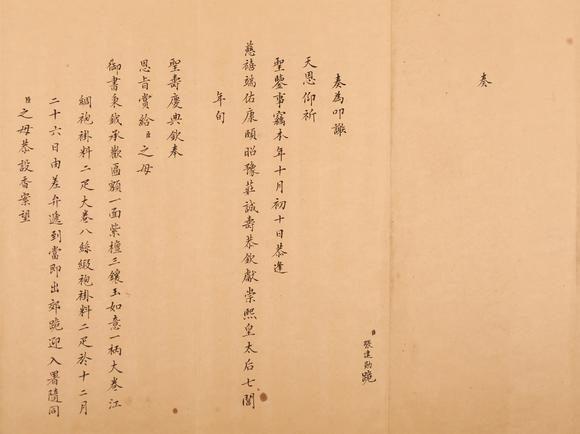 奏
臣張建勛跪
奏為叩謝
天恩仰祈
聖鑒事竊本年十月初十日恭逢
慈禧端佑康頤昭豫莊誠壽恭欽獻崇熙皇太后七閏
年旬
聖壽慶典欽奉
恩旨賞給臣之母
御書秉鉞承歡匾額一面紫檀三鑲玉如意一柄大卷江
綢袍褂料二疋大卷八絲緞袍褂料二疋於十二月
二十六日由差弁遞到當即出郊跪迎入署隨同
臣之母恭設香案望